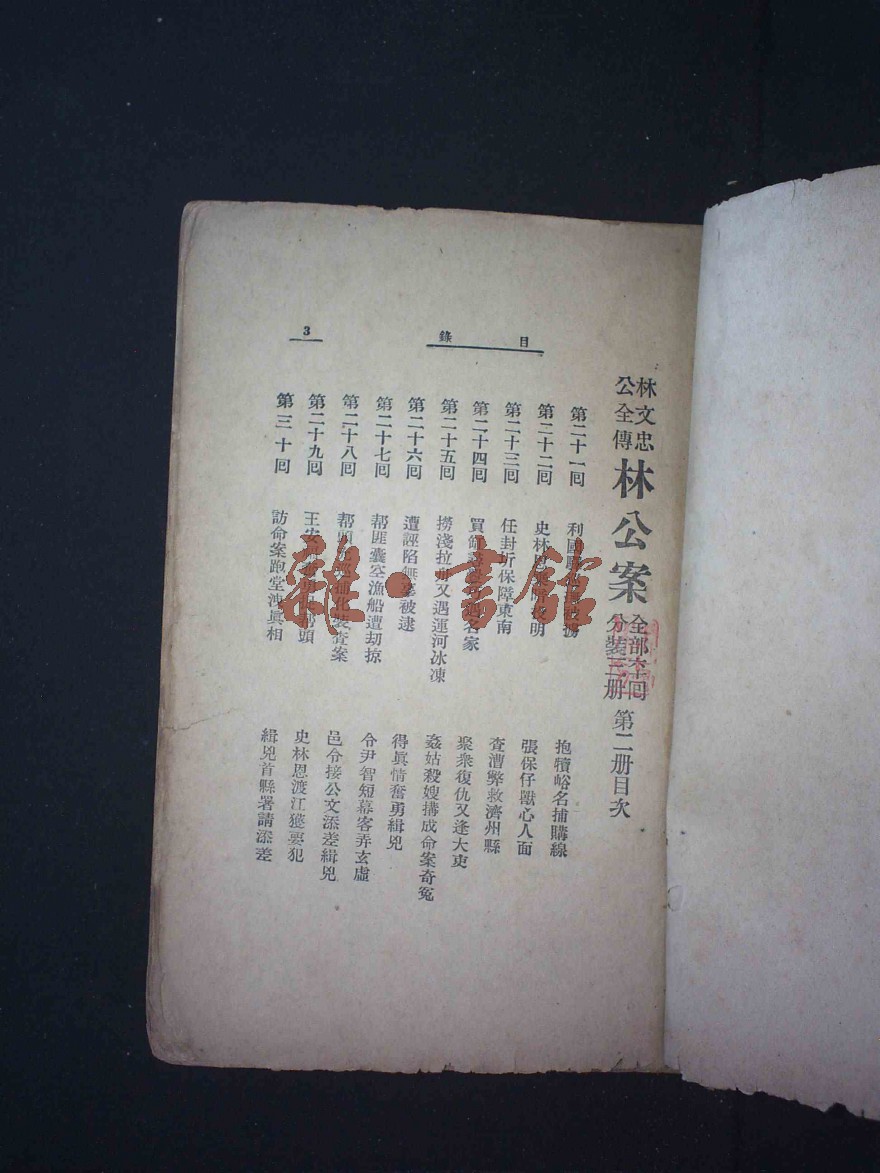 目錄
3
林文忠
公全傳
林公案
全部六十回
分裝三册
第二册目次
第二十一回 利國 抱犢峪名捕購線
第二十二回 史林恩 明 張保仔獸心人面
第二十三回 任封圻保障東南 查漕弊救濟州縣
第二十四回 買 名家 聚衆復仇又逢大吏
第二十五回 撈淺拉 又遇運河冰凍 姦姑殺嫂搆成命案奇冤
第二十六回 遭誣陷無辜被逮 得眞情奮勇緝兇
第二十七回 帮匪囊空漁船遭刧掠 令尹智短幕客弄玄虛
第二十八回 帮頭 捕化裝查案 邑令接公文添差緝兇
第二十九回 王安 帮頭 史林恩渡江獲要犯
第三十回 訪命案跑堂洩眞相 緝兇首縣署請添差
雜·書館